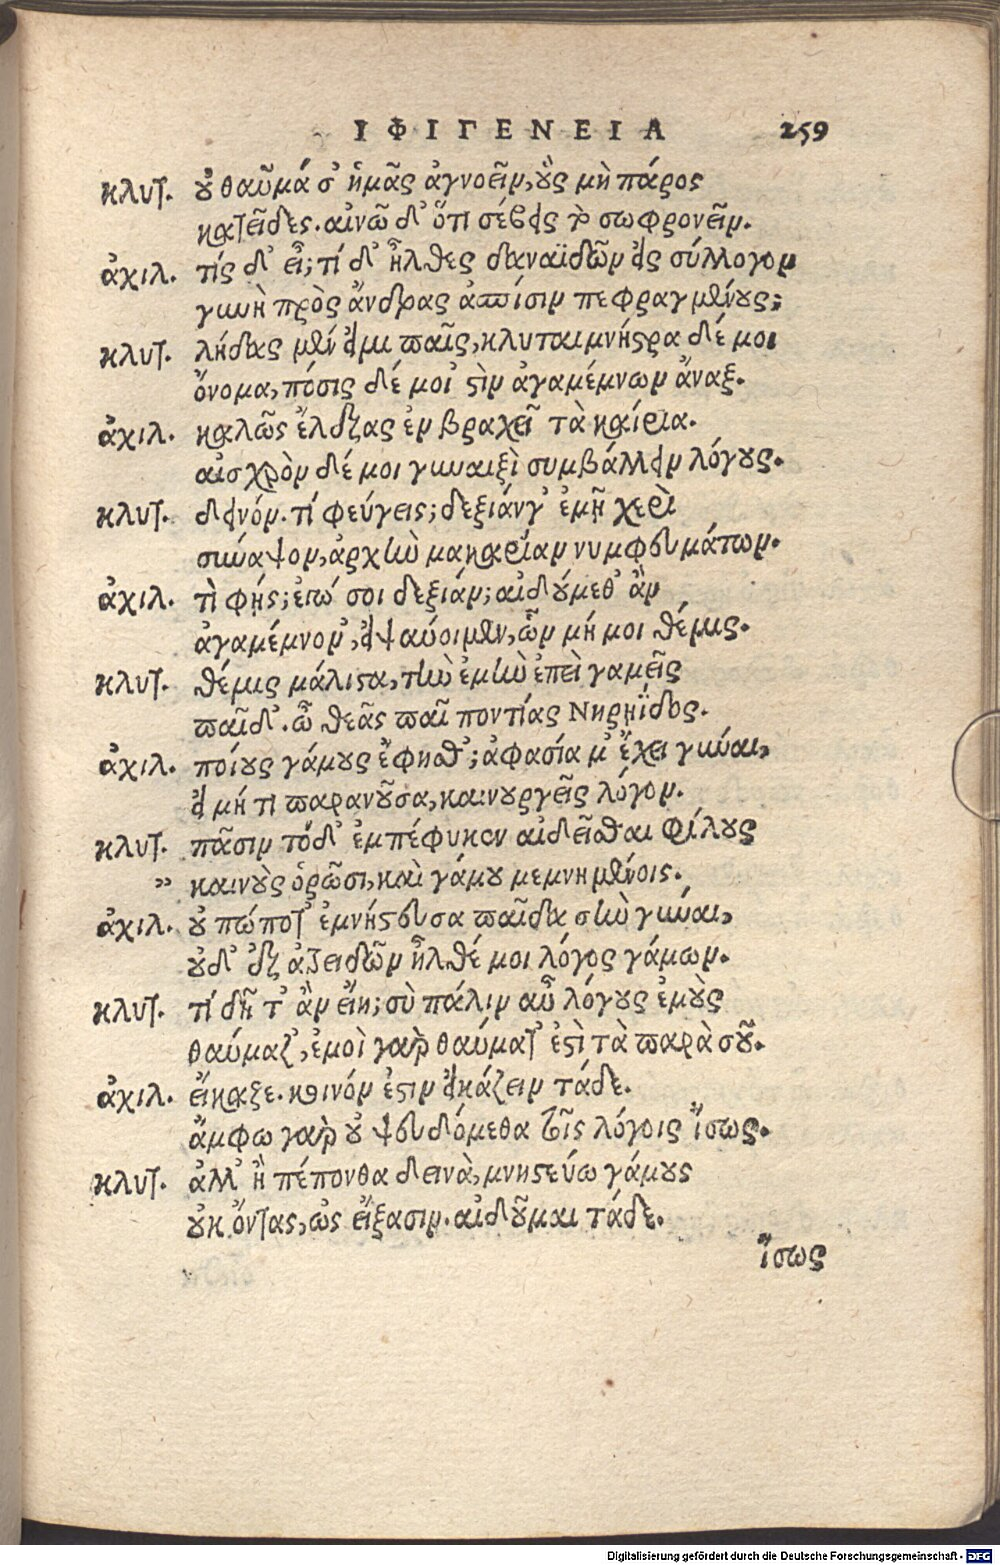 ΙΦΙΓΕΝΕΙΑ 259
κλυτ. οὐ θαῦμά σ' ἡμᾶς ἀγνοεῖν, οὓς μὴ πάρος
κατεῖδες. αἰνῶ δ' ὅτι σέβεις τὸ σωφρονεῖν.
ἀχιλ. τίς δ' εἶ; τί δ' ἦλθες δαναϊδῶν εἰς σύλλογον
γυνὴ πρὸς ἄνδρας ἀσπίσιν πεφραγμένους;
κλυτ. λήδας μέν εἰμι παῖς, κλυταιμνήστρα δέ μοι
ὄνομα, πόσις δέ μοὐστὶν ἀγαμέμνων ἄναξ.
ἀχιλ. καλῶς ἔλεξας ἐν βραχεῖ τὰ καίρια.
αἰσχρὸν δέ μοι γυναιξὶ συμβάλλειν λόγους.
κλυτ. δεινόν. τί φεύγεις; δεξιάν γ' ἐμῇ χερὶ
σύναψον, ἀρχὴν μακαρίαν νυμφευμάτων.
ἀχιλ. τὶ φῄς; ἐγώ σοι δεξιάν; αἰδούμεθ' ἂν
ἀγαμέμνον', εἰ ψαύοιμεν, ὧν μή μοι θέμις.
κλυτ. θέμις μάλιστα, τὴν ἐμὴν ἐπεὶ γαμεῖς
παῖδ'. ὦ θεᾶς παῖ ποντίας Νηρηΐδος.
ἀχιλ. ποίους γάμους ἔφησθ'; ἀφασία μ' ἔχει γύναι,
εἰ μή τι παρανοῦσα, καινουργεῖς λόγον.
κλυτ. πᾶσιν τόδ' ἐμπέφυκεν αἰδεῖσθαι φίλους
" καινοὺς ὁρῶσι, καὶ γάμου μεμνημένοις.
ἀχιλ. οὐ πώποτ' ἐμνήστευσα παῖδα σὴν γύναι,
οὐδ' ἐξ ἀτρειδῶν ἦλθέ μοι λόγος γάμων.
κλυτ. τί δῆτ' ἂν εἴη; σὺ πάλιν αὖ λόγους ἐμοὺς
θαύμαζ', ἐμοὶ γὰρ θαύματ' ἐστὶ τὰ παρὰ σοῦ.
ἀχιλ. εἴκαζε. κοινόν ἐστιν εἰκάζειν τάδε.
ἄμφω γὰρ οὐ ψευδόμεθα τοῖς λόγοις ἴσως.
κλυτ. ἀλλ' ἢ πέπονθα δεινὰ, μνηστεύω γάμους
οὐκ ὄντας, ὡς εἴξασιν. αἰδοῦμαι τάδε.
ἴσως
Digitalisierung gefördert durch die Deutsche Forschungsgemeinschaft - DFG